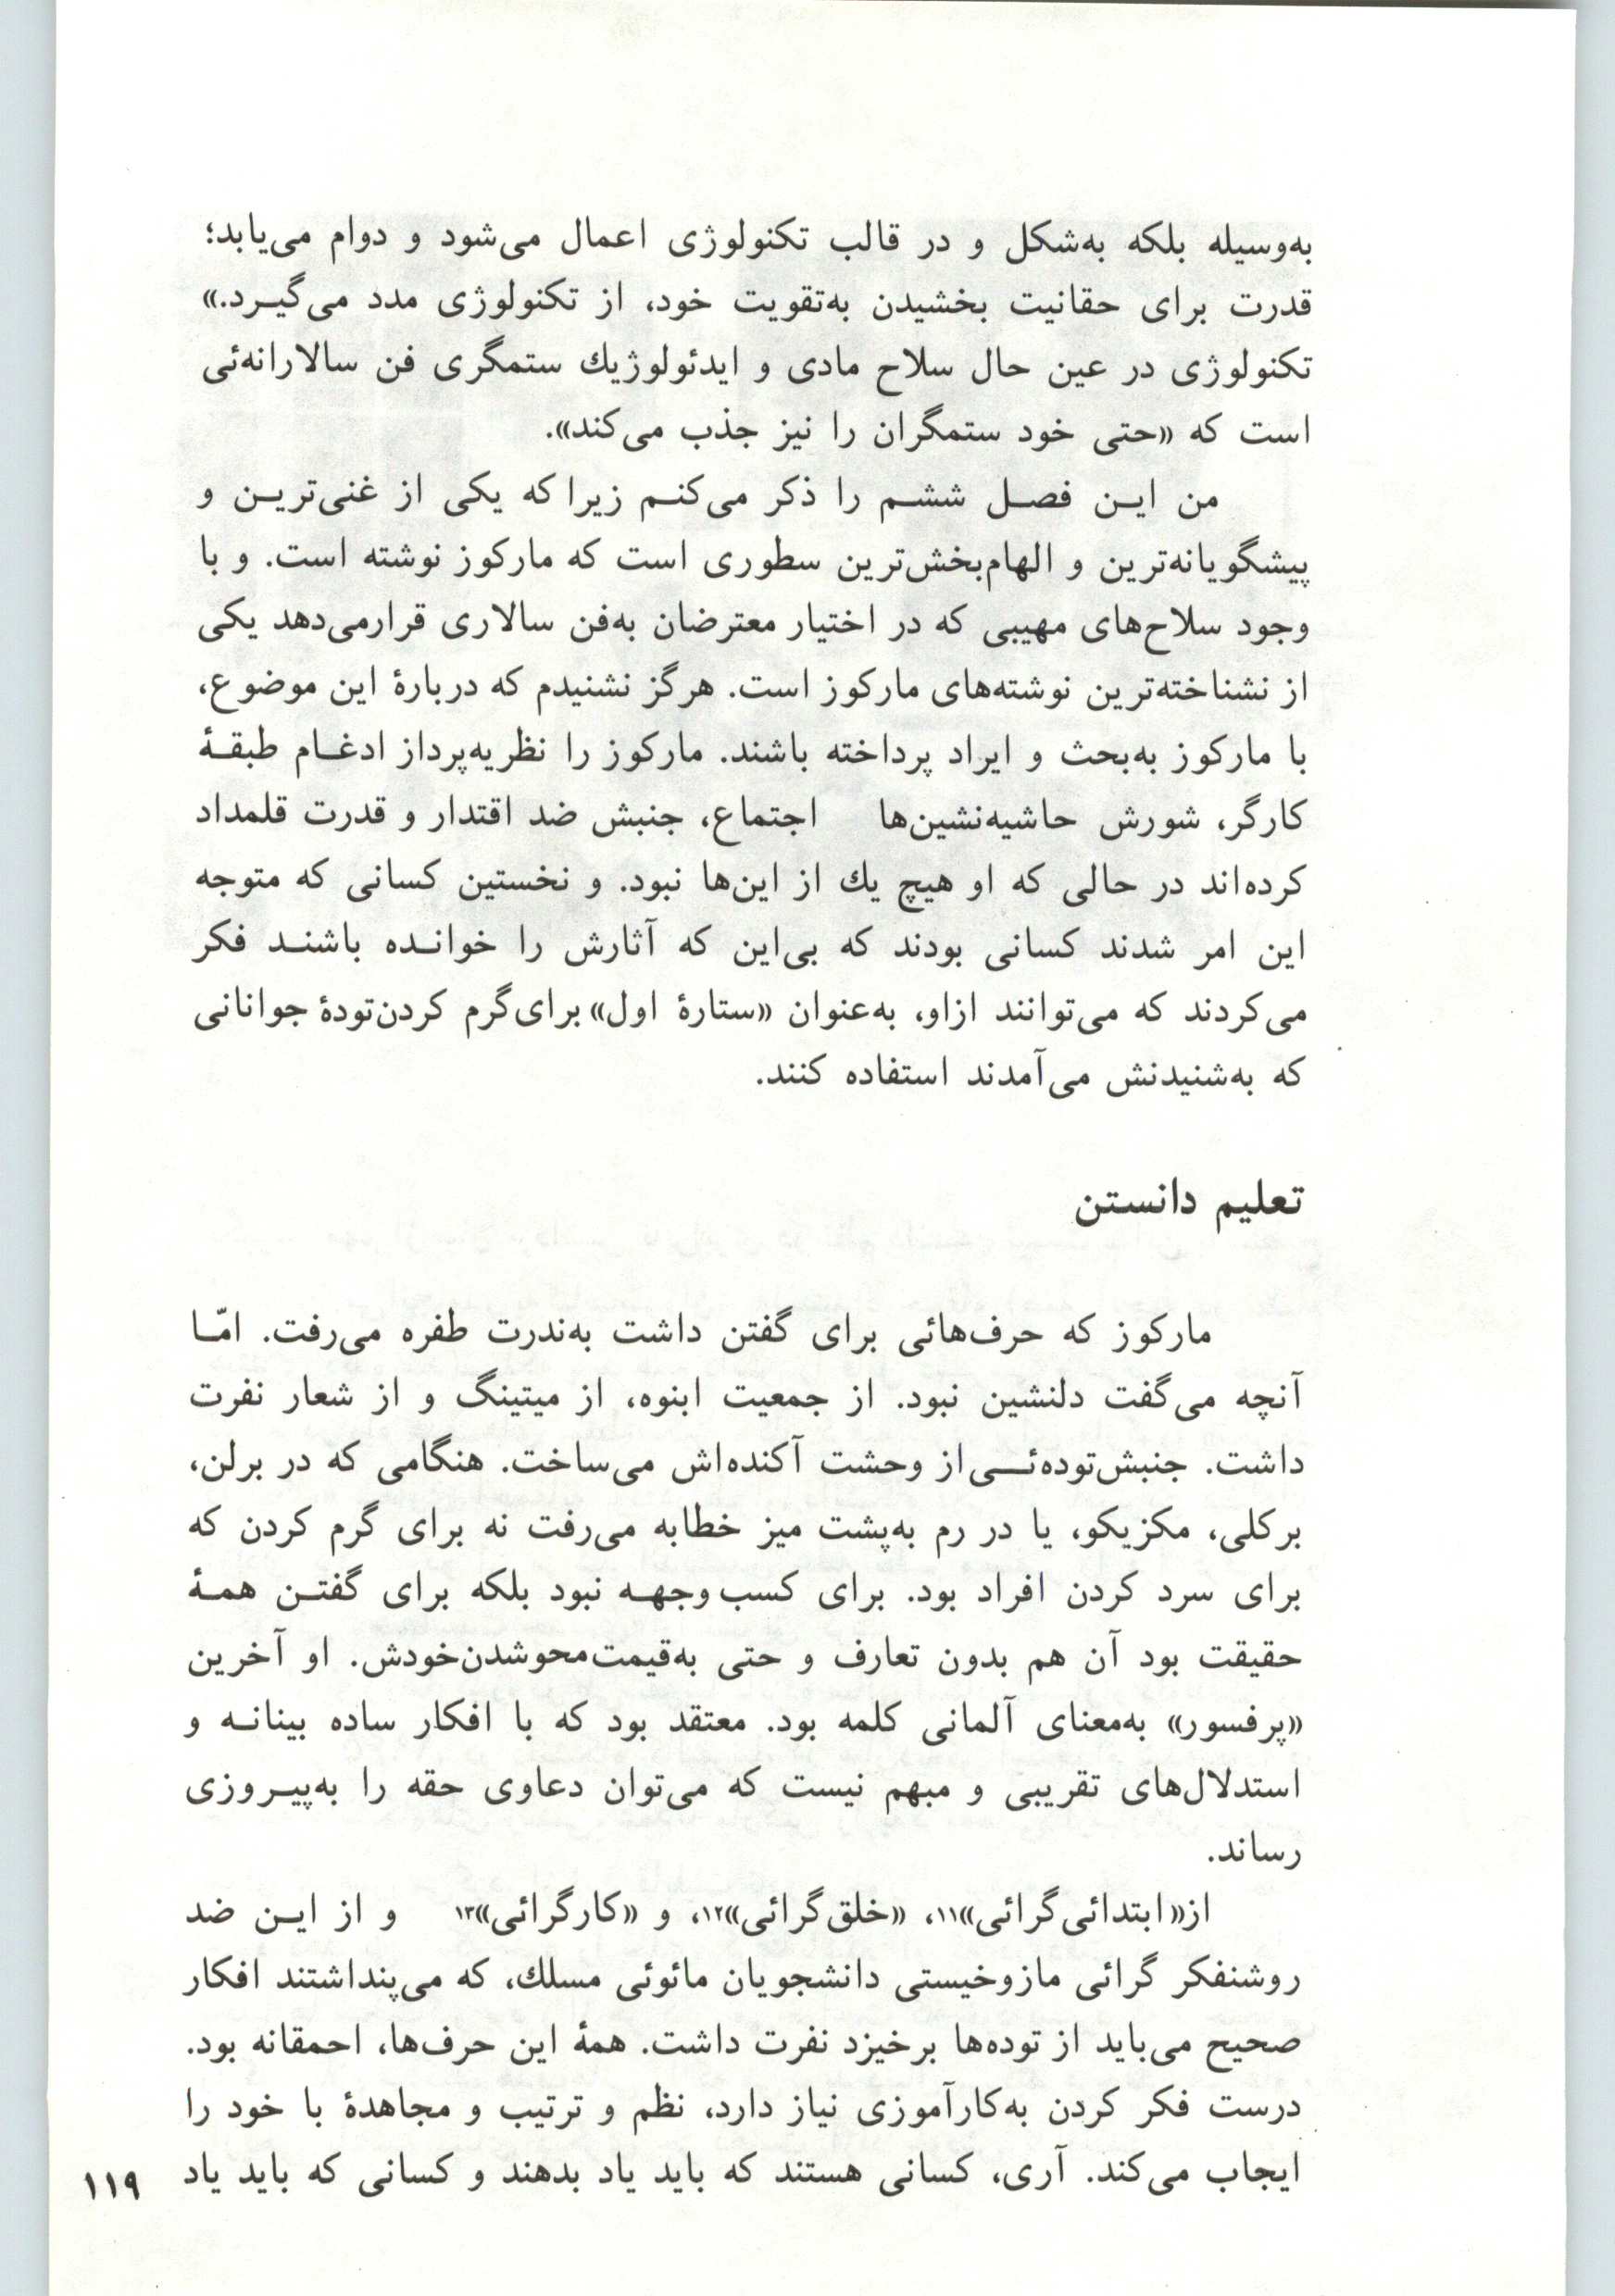 به‌وسیله بلکه به‌شکل و در قالب تکنولوژی اعمال می‌شود و دوام می‌یابد؛
قدرت برای حقانیت بخشیدن به‌تقویت خود، از تکنولوژی مدد می‌گیـرد.»
تکنولوژی در عین حال سلاح مادی و ایدئولوژیك ستمگری فن سالارانه‌ئی
است که «حتی خود ستمگران را نیز جذب می‌کند».
من ایـن فصـل ششـم را ذکر می‌کنـم زیرا که یکی از غنی‌تریـن و
پیشگویانه‌ترین و الهام‌بخش‌ترین سطوری است که مارکوز نوشته است. و با
وجود سلاح‌های مهیبی که در اختیار معترضان به‌فن سالاری قرارمی‌دهد یکی
از نشناخته‌ترین نوشته‌های مارکوز است. هرگز نشنیدم که دربارهٔ این موضوع،
با مارکوز به‌بحث و ایراد پرداخته باشند. مارکوز را نظریه‌پرداز ادغـام طبقـهٔ
کارگر، شورش حاشیه‌نشین‌ها اجتماع، جنبش ضد اقتدار و قدرت قلمداد
کرده‌اند در حالی که او هیچ یك از این‌ها نبود. و نخستین کسانی که متوجه
این امر شدند کسانی بودند که بی‌این که آثارش را خوانـده باشنـد فکر
می‌کردند که می‌توانند ازاو، به‌عنوان «ستارهٔ اول» برای‌گرم کردن‌تودهٔ جوانانی
که به‌شنیدنش می‌آمدند استفاده کنند.
تعلیم دانستن
مارکوز که حرف‌هائی برای گفتن داشت به‌ندرت طفره می‌رفت. امّـا
آنچه می‌گفت دلنشین نبود. از جمعیت ابنوه، از میتینگ و از شعار نفرت
داشت. جنبش‌توده‌ئـــی‌از وحشت آکنده‌اش می‌ساخت. هنگامی که در برلن،
برکلی، مکزیکو، یا در رم به‌پشت میز خطابه می‌رفت نه برای گرم کردن که
برای سرد کردن افراد بود. برای کسب وجهـه نبود بلکه برای گفتـن همـهٔ
حقیقت بود آن هم بدون تعارف و حتی به‌قیمت‌محوشدن‌خودش. او آخرین
«پرفسور» به‌معنای آلمانی کلمه بود. معتقد بود که با افکار ساده بینانـه و
استدلال‌های تقریبی و مبهم نیست که می‌توان دعاوی حقه را به‌پیـروزی
رساند.
از«ابتدائی‌گرائی»۱۱، «خلق‌گرائی»۱۲، و «کارگرائی»۱۳ و از ایـن ضد
روشنفکر گرائی مازوخیستی دانشجویان مائوئی مسلك، که می‌پنداشتند افکار
صحیح می‌باید از توده‌ها برخیزد نفرت داشت. همهٔ این حرف‌ها، احمقانه بود.
درست فکر کردن به‌کارآموزی نیاز دارد، نظم و ترتیب و مجاهدهٔ با خود را
ایجاب می‌کند. آری، کسانی هستند که باید یاد بدهند و کسانی که باید یاد
۱۱۹